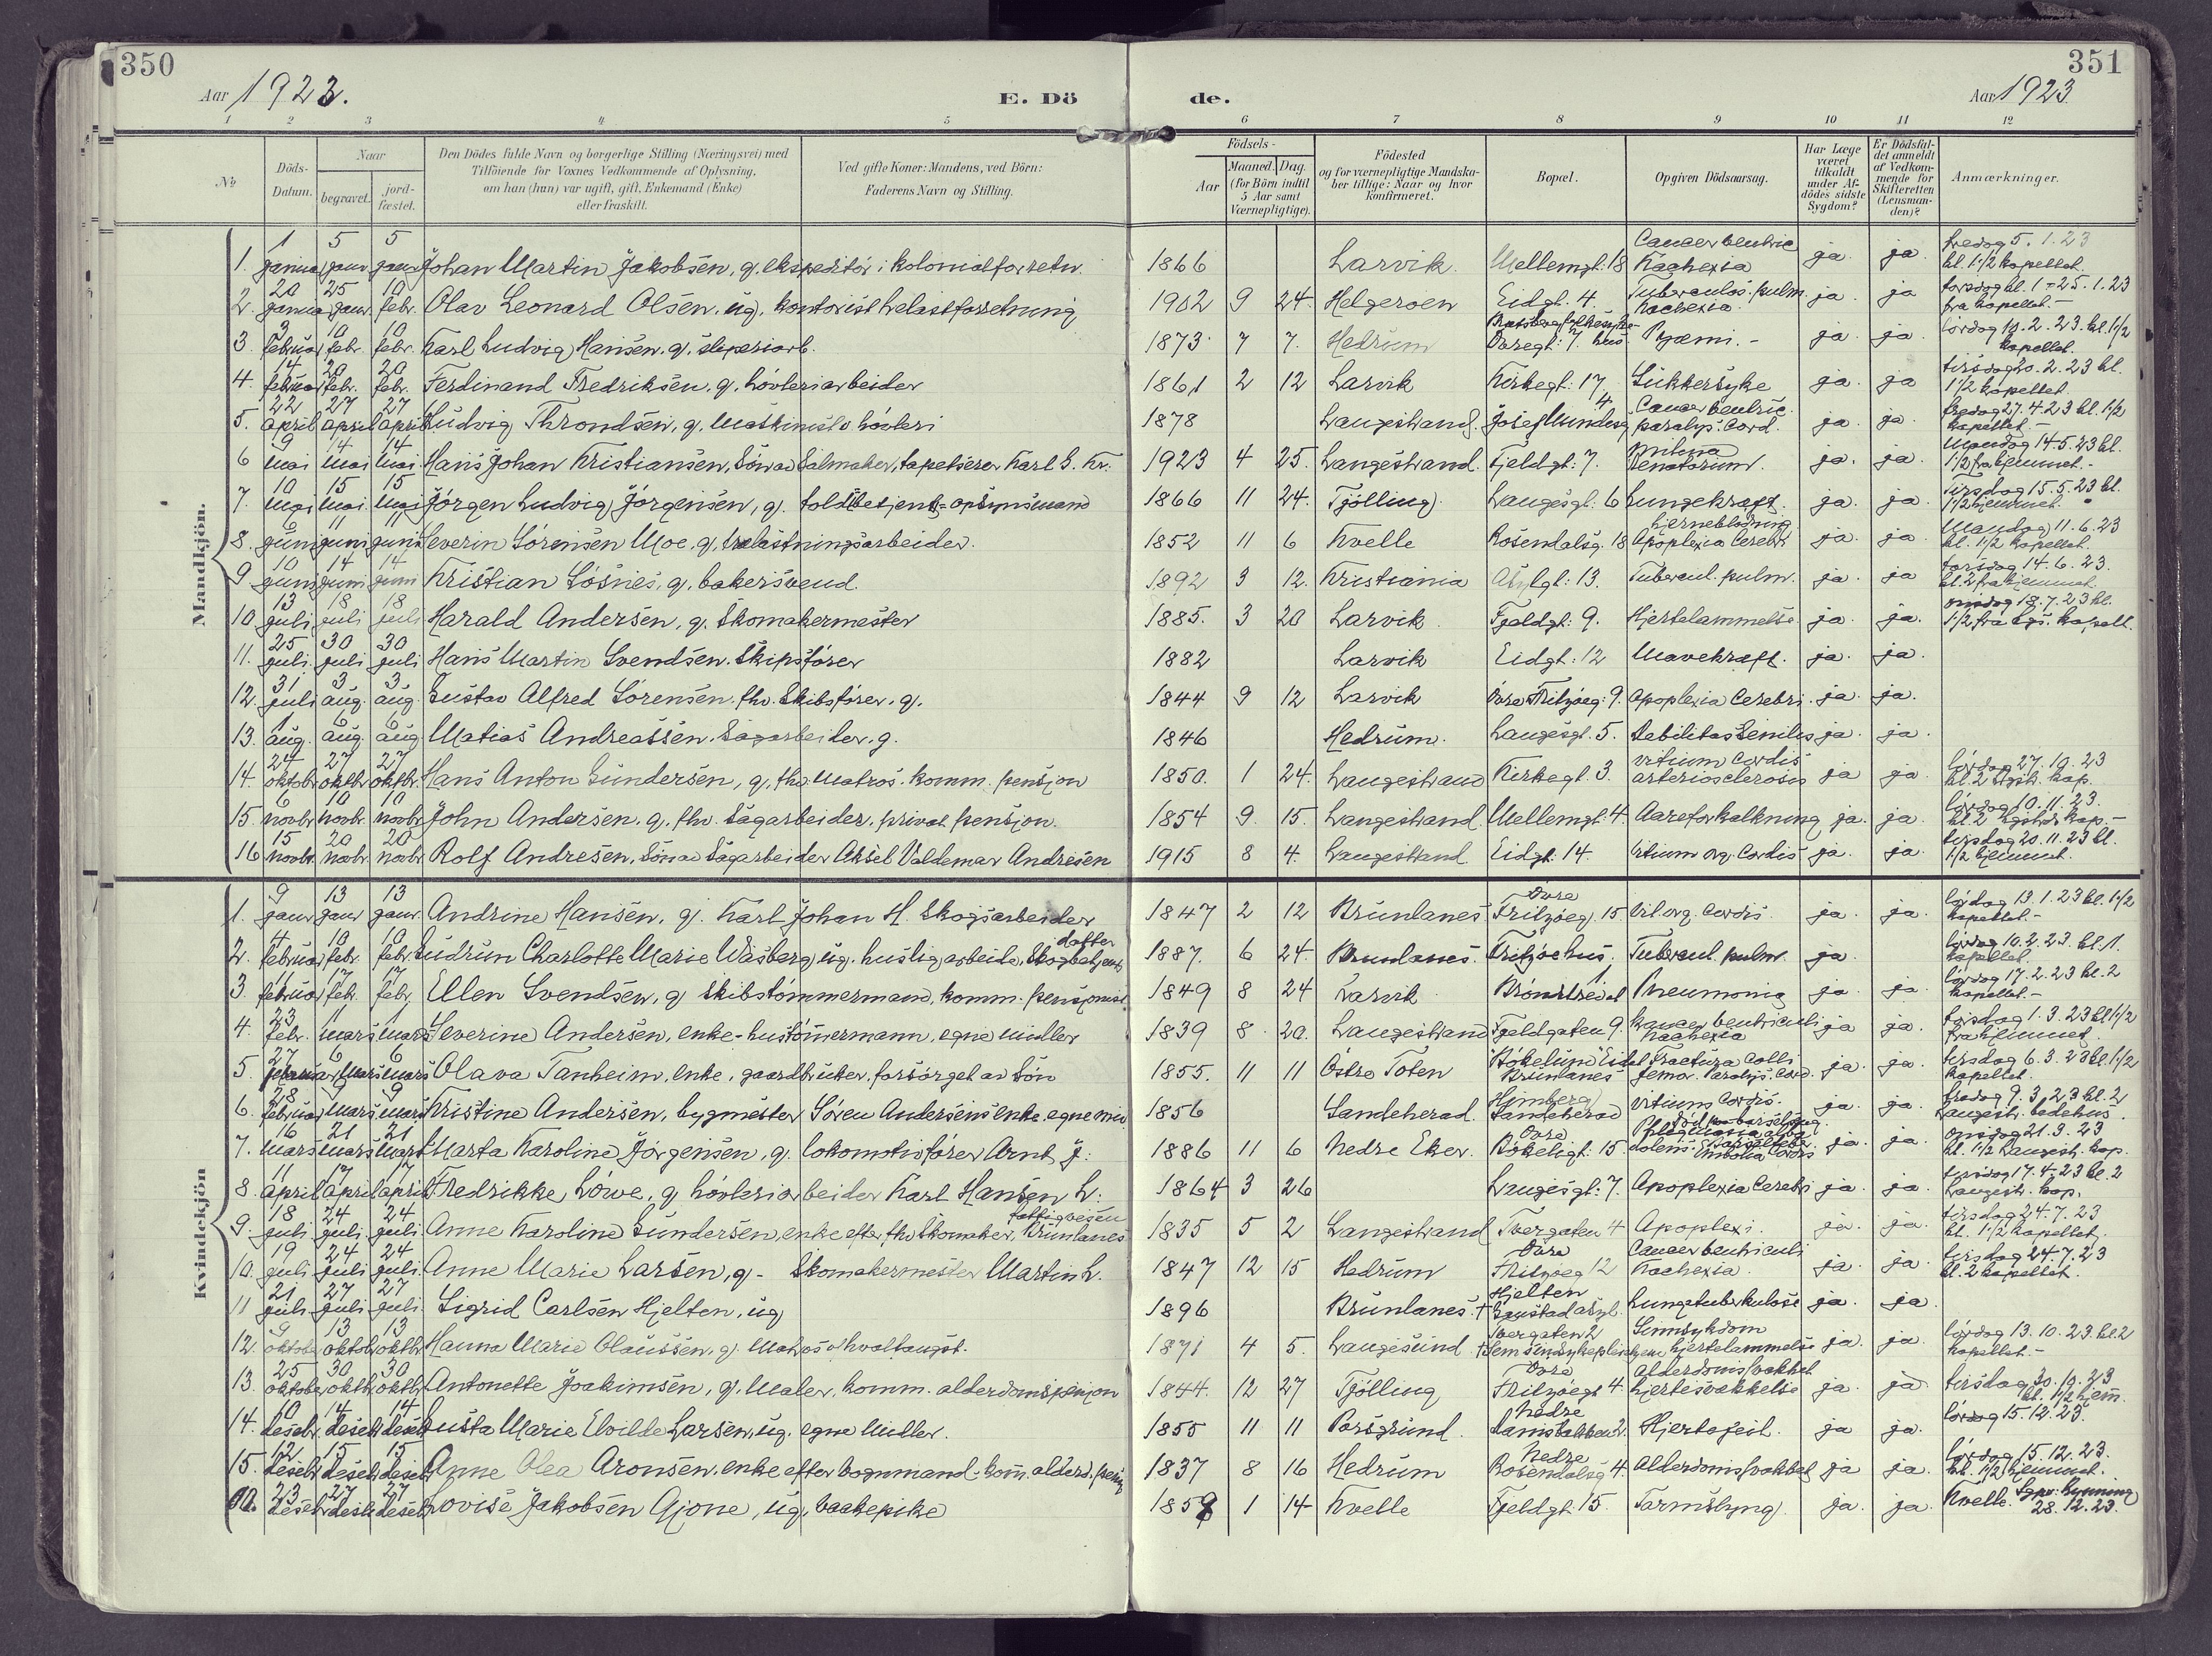 350
351
Aar 1923.
E. Döde.
Aar 1923
1 2 3 4 5 6 7 8 9 10 11 12
No
Döds-Datum.
Naar
begravet.
jord-fæstet.
Den Dödes fulde Navn og borgerlige Stilling (Næringsvei) med
Tilföiende for Voxnes Vedkommende af Oplysning,
om han (hun) var ugift, gift, Enkemand (Enke)
eller fraskilt.
Ved gifte Koner: Mandens, ved Börn:
Faderens Navn og Stilling.
Födsels-
Aar
Maaned. Dag.
(for Börn indtil
5 Aar samt
Værnepligtige).
Födested
og for værnepligtige Mandska-
ber tillige: Naar og hvor
konfirmeret.
Bopæl.
Opgiven Dödsaarsag.
Har Læge
været
tilkaldt
under Af-
dödes sidste
Sygdom?
Er Dödsfal-
det anmeldt
af Vedkom-
mende for
Skifteretten
(Lensman-
den)?
Anmærkninger.
Mandkjön.
1. 1 januar 5 januar 5 januar Johan Martin Jakobsen, g. ekspeditör i kolonialforretn. 1866 Larvik. Mellemgt. 18 Cancer ventric Kachexia ja. ja. fredag 5. 1. 23 kl. 1 1/2 kapellet.
2. 20 januar 25 januar 10 febr. Olav Leonard Olsen, ug. kontorist trelastforretning 1902 9 24. Helgeroen Eidgt. 4. Tuberculos. pulm. Kachexia. ja. ja torsdag kl. 1 25. 1. 23 fra kapellet.-
3. 3 februar 10 febr. 10 febr. Karl Ludvig Hansen, g. sliperiarb. 1873 7 7. Hedrum Övregt. 7. Pyæmi.- ja. ja lördag 10. 2. 23. kl. 1 1/2 kapellet.
4. 14 februar 20 febr. 20 febr. Ferdinand Fredriksen, g. hövleriarbeider 1861 2 12 Larvik Kirkegt: 17 Sukkersyke ja. ja tirsdag 20. 2. 23 kl. 1 1/2 kapellet.
5. 22 april 27 april 27 april Ludvig Throndsen, g. maskinist v hövleri 1878 Langestrand Josef Mundusg 4 Cancer ventric. paralys. cord. ja. ja. fredag 27. 4. 23 kl. 1 1/2 kapellet.-
6 9 mai 14 mai 14 mai Hans Johan Kristiansen, Sön av Salmaker, tapetserer Karl S. Kr. 1923 4 25. Langestrand. Fjeldgt: 7. ja. ja. Mandag 14. 5. 23 kl. 1 1/2 fra hjemmet.-
7. 10 mai 15 mai. 15 mai Jörgen Ludvig Jörgensen, g. toldbetjent-opsynsmand 1866 11 24. Tjölling Langesgt. 6 Lungekræft. ja. ja. Tirsdag 15. 5. 23 kl. 1 1/2 hjemmet.
8. 6 juni 11 juni 11 juni Severin Sörensen Moe, g. trelastningsarbeider. 1852 11 6 Kvelle Rosendalsg. 18 hjerneblödning Apoplexia Cerebri ja. ja. Mandag 11. 6. 23 kl. 1 1/2 kapellet.
9 10 juni 14 juni 14 juni Kristian Lösnes, g. bakersvend. 1892 3 12. Kristiania Asylgt. 13. Tubercul. pulm. ja. ja torsdag 14. 6. 23. kl. 2 fra hjemmet.
10. 13 juli 18 juli 18 juli Harald Andersen, g. Skomakermester 1885. 3 20 Larvik. Fjeldgt: 9. Hjertelammelse ja. ja. onsdag 18. 7. 23 kl. 1 1/2 fra Lgs. kapell.
11. 25 juli. 30 juli 30 juli Hans Martin Svendsen. Skipsförer 1882 Larvik Eidgt: 12 Mavekræft. ja. ja.
12. 31 juli 3 aug. 3 aug. Gustav Alfred Sörensen. fhv. Skibsförer. g. 1844 9 12 Larvik Övre Fritzöeg: 9. Apoplexia Cerebri. ja. ja.
13. 1 aug. 6 aug. 6 aug Matias Andreassen. Sagarbeider. g. 1846 Hedrum. Langesgt. 5. Debilitas Senilis ja. ja.
14. 24 oktobr 27 oktbr 27 oktbr. Hans Anton Gundersen, g. fhv. Matros. komm. pensjon 1850. 1 24. Langestrand Kirkegt. 3. vitium Cordis arteriosclerosis ja ja. lördag 27. 10. 23 kl. 2 Lgstr. kap.
15. 6 novbr 10 novbr 10 novbr John Andersen. g. fhv. Sagarbeider. privat pensjon. 1854 9. 15. Langestrand. Mellemgt. 4. Aareforkalkning ja. ja. lördag 10. 11. 23. kl. 2 Lgstrds kap.-
16 15 novbr. 20 novbr 20 novbr Rolf Andresen. Sön av Sagarbeider Aksel Valdemar Andresen 1915 8 4. Langestrand Eidgt. 14. Vitium org. Cordis ja. ja. tirsdag 20. 11. 23 kl. 1 1/2 hjemmet.
Kvindekjön
1. 9 januar 13 januar 13 januar. Andrine Hansen, g. Karl Johan H. Skogsarbeider 1847 2 12 Brunlanes. Övre Fritzöeg. 15 Vit. org. Cordis ja. ja. lördag 13. 1. 23 kl. 1 1/2 kapellet.-
2. 4 februar 10 febr. 10 febr. Gudrun Charlotte Marie Wasberg, ug. huslig arbeide. Skogbetjent datter 1887. 6 24. Brunlanes. Fritzöehus. Tubercul. pulm. ja. lördag 10. 2. 23. kl. 1. kapellet.
3. 11 februar 17 febr. 17 febr. Ellen Svendsen, g Skibstömmermand, komm. pensjonist 1849 8 24 Larvik 1 Pneumonia ja. ja. lördag 17. 2. 23 kl. 2 kapellet.-
4. 23 febr. 1 mars 1 mars Severine Andersen, enke-hustömmermann, egne midler 1839 8. 20. Langestrand Fjeldgaten 9. Kancer ventriculi Kachexia ja ja. torsdag 1. 3. 23 kl 1 1/2 fra hjemmet.
5. 27 februar 6 mars 6 mars Olava Tanheim, enke, gaardbruker, forsörget av Sön 1855. 11 11 Östre Toten Bökelund Eidet Brunlanes Fractura Colli femor. Paralys. Cord. ja. ja. tirsdag 6. 3. 23 kl. 1 1/2 kapellet.
6. 28 februar 9 mars 9 mars Kristine Andersen, bygmester Sören Andersens enke. egne mid. 1856 Sandeherad. Himberg Sandeherad vitium Cordis. ja. ja. fredag 9. 3. 23 kl. 2 Langestr. bedehus.
7. 16 mars 21 mars 21 mars Marta Karoline Jörgensen, g. lokomotivförer Arnt J. 1886 11 6 Nedre Eker. Övre Bökeligt: 15. Phlegmasia alba dolens. Embolia Cordis ja. ja. onsdag 21. 3. 23 kl. 1 1/2 Langestr. kap.
8. 11 april 17 april 17 april Fredrikke Löwe, g hövleriarbeider Karl Hansen L. 1864 3 26 Langesgt: 7. Apoplexia Cerebri ja. ja. tirsdag 17. 4. 23 kl. 2 Langestr. kap.
9. 18 juli 24 juli 24 juli. Anne Karoline Gundersen, enke efter fhv. Skomaker, fattigvesen Brunlanes 1835 5 2 Langestrand Tvergaten 4 Apoplexi. ja. ja. tirsdag 24. 7. 23 kl. 1 1/2 kapellet.
10. 19 juli. 24 juli 24 juli. Anne Marie Larsen, g- Skomakermester Martin L. 1847 12 15 Hedrum Övre Fritzöeg 12 Cancer ventriculi Kachexia. ja. ja. tirsdag 24. 7. 23 kl. 2 kapellet.
11 21 juli. 27 juli 27 juli. Sigrid Carlsen Hjelten, ug 1896 Brunlanes. Hjelten † Gaustad asyl. Lungetuberkulose ja. ja.
12. 9 oktobr 13 oktobr 13 oktbr Hanna Marie Olaussen, g. Matros o/ hvalfangst. 1871 4 5. Langesund. Tvergaten 2 † Sem Sindsykepleiehjem Sinnsykdom hjertelammelse ja. ja. lördag 13. 10. 23. kl 2 kapellet.-
13. 25 oktober 30 oktbr 30 oktbr Antonette Joakimsen, g. Maler, komm. alderdomspensjon 1844. 12 27 Tjölling Övre Fritzöegt 4. alderdomssvakhet hjertesvækkelse ja. ja. tirsdag 30. 10. 23 kl. 1 1/2 hjem.
14. 10 desebr. 14 desebr 14 desebr Gusta Marie Elvilde Larsen, ug. egne Midler. 1855 11 11 Porsgrund. Nedre Hjertefeil. ja ja. lördag 15. 12. 23.
15. 12 desebr 15 desebr 15 desebr Anne Olea Aronsen. enke efter vognmand. kom. alderd. pensj 1837 8 16 Hedrum Nedre Rosendalsg 4. Alderdomssvakhet ja ja. lördag 15. 12. 23. kl. 1 1/2 hjemmet.
23 desebr 27 desebr 27 desebr Lovise Jakobsen Gjone, ug, vaskepike 1859 1 14 Kvelle Fjeldgt. 15. Tarmslyng. ja. ja. Kvelle. Sgpr. 28. 12. 23.